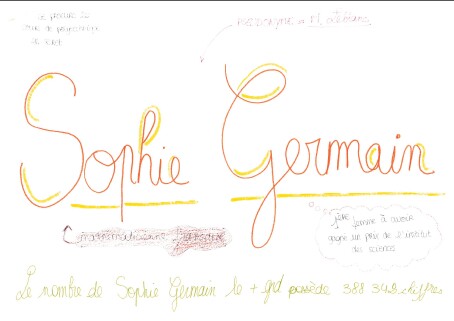 PSEUDONYME : M.
Sophie Germain
mathématicienne française
1ère femme à avoir
gagné un prix de l'institut
des sciences
Le nombre de Sophie Germain le + grd possède 388 342 chiffres